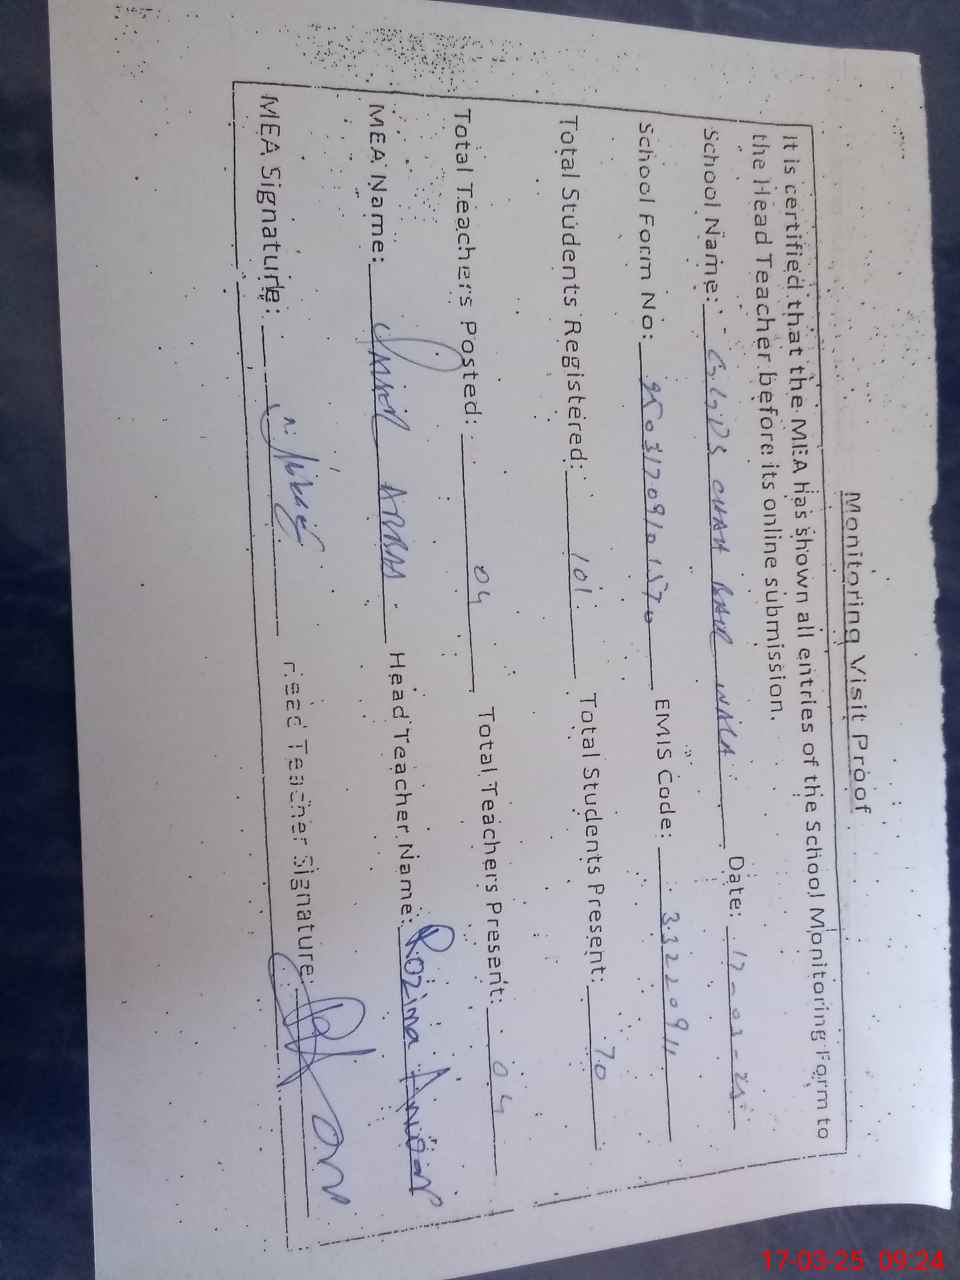 Monitoring Visit Proof
It is certified that the MEA has shown all entries of the School Monitoring Form to
the Head Teacher before its online submission.
School Name: CHAH Date: 17-03-25
School Form No: EMIS Code: 33220911
Total Students Registered: 101 Total Students Present: 70
Total Teachers Posted: 04 Total Teachers Present: 04
MEA Name: Head Teacher Name: Rozina
MEA Signature: Head Teacher Signature:
17-03-25 09:24